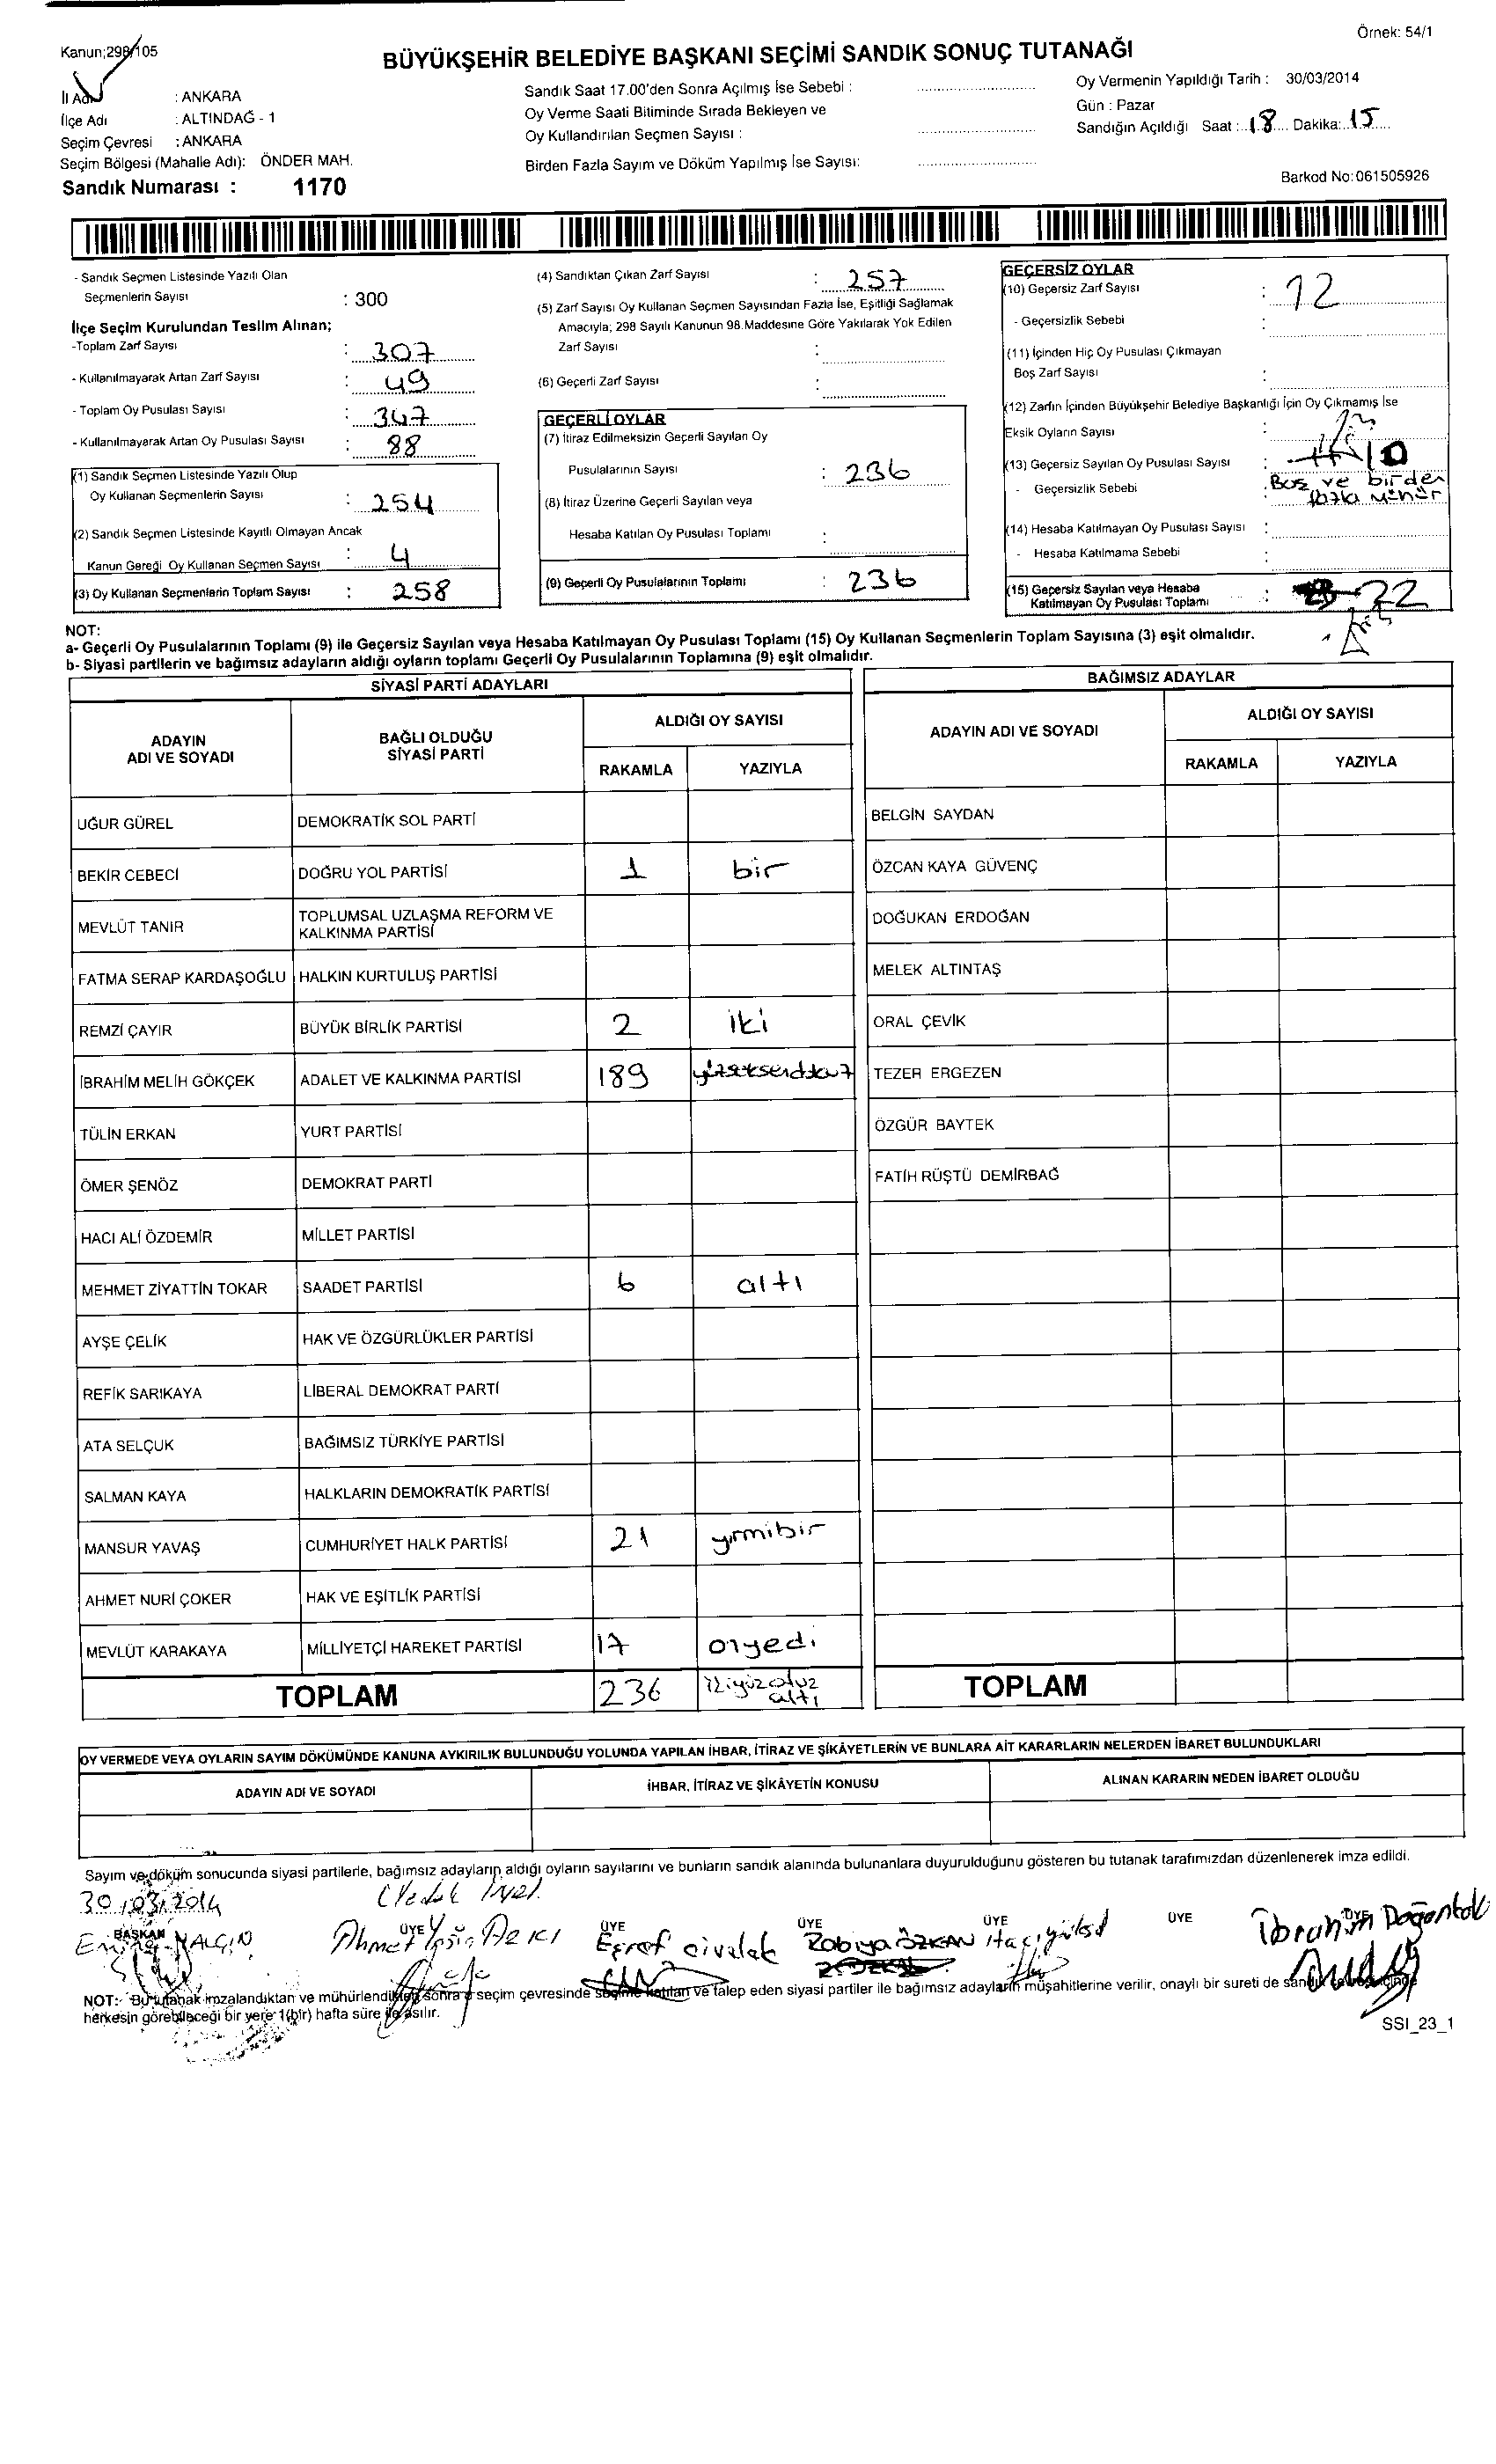 Örnek: 54/1
Kanun;298/105
BÜYÜKŞEHİR BELEDİYE BAŞKANI SEÇİMİ SANDIK SONUÇ TUTANAĞI
İl Adı : ANKARA
İlçe Adı : ALTINDAĞ - 1
Seçim Çevresi : ANKARA
Seçim Bölgesi (Mahalle Adı): ÖNDER MAH.
Sandık Numarası : 1170
Sandık Saat 17.00'den Sonra Açılmış İse Sebebi :
Oy Verme Saati Bitiminde Sırada Bekleyen ve
Oy Kullandırılan Seçmen Sayısı :
Birden Fazla Sayım ve Döküm Yapılmış İse Sayısı:
Oy Vermenin Yapıldığı Tarih : 30/03/2014
Gün : Pazar
Sandığın Açıldığı Saat : 18 Dakika: 15
Barkod No:061505926
- Sandık Seçmen Listesinde Yazılı Olan
Seçmenlerin Sayısı : 300
İlçe Seçim Kurulundan Teslim Alınan;
-Toplam Zarf Sayısı : 307
- Kullanılmayarak Artan Zarf Sayısı : 49
- Toplam Oy Pusulası Sayısı : 347
- Kullanılmayarak Artan Oy Pusulası Sayısı : 88
(1) Sandık Seçmen Listesinde Yazılı Olup
Oy Kullanan Seçmenlerin Sayısı : 254
(2) Sandık Seçmen Listesinde Kayıtlı Olmayan Ancak
Kanun Gereği Oy Kullanan Seçmen Sayısı : 4
(3) Oy Kullanan Seçmenlerin Toplam Sayısı : 258
(4) Sandıktan Çıkan Zarf Sayısı : 257
(5) Zarf Sayısı Oy Kullanan Seçmen Sayısından Fazla İse, Eşitliği Sağlamak
Amacıyla; 298 Sayılı Kanunun 98.Maddesine Göre Yakılarak Yok Edilen
Zarf Sayısı :
(6) Geçerli Zarf Sayısı :
GEÇERLİ OYLAR
(7) İtiraz Edilmeksizin Geçerli Sayılan Oy
Pusulalarının Sayısı : 236
(8) İtiraz Üzerine Geçerli Sayılan veya
Hesaba Katılan Oy Pusulası Toplamı :
(9) Geçerli Oy Pusulalarının Toplamı : 236
GEÇERSİZ OYLAR
(10) Geçersiz Zarf Sayısı : 12
- Geçersizlik Sebebi :
(11) İçinden Hiç Oy Pusulası Çıkmayan
Boş Zarf Sayısı :
(12) Zarfın İçinden Büyükşehir Belediye Başkanlığı İçin Oy Çıkmamış İse
Eksik Oyların Sayısı :
(13) Geçersiz Sayılan Oy Pusulası Sayısı : 10
- Geçersizlik Sebebi : Boş ve birden
fazla mühür
(14) Hesaba Katılmayan Oy Pusulası Sayısı :
- Hesaba Katılmama Sebebi :
(15) Geçersiz Sayılan veya Hesaba
Katılmayan Oy Pusulası Toplamı : 22
NOT:
a- Geçerli Oy Pusulalarının Toplamı (9) ile Geçersiz Sayılan veya Hesaba Katılmayan Oy Pusulası Toplamı (15) Oy Kullanan Seçmenlerin Toplam Sayısına (3) eşit olmalıdır.
b- Siyasi partilerin ve bağımsız adayların aldığı oyların toplamı Geçerli Oy Pusulalarının Toplamına (9) eşit olmalıdır.
SİYASİ PARTİ ADAYLARI
ADAYIN ADI VE SOYADI
BAĞLI OLDUĞU SİYASİ PARTİ
ALDIĞI OY SAYISI
RAKAMLA YAZIYLA
UĞUR GÜREL DEMOKRATİK SOL PARTİ
BEKİR CEBECİ DOĞRU YOL PARTİSİ 1 bir
MEVLÜT TANIR TOPLUMSAL UZLAŞMA REFORM VE
KALKINMA PARTİSİ
FATMA SERAP KARDAŞOĞLU HALKIN KURTULUŞ PARTİSİ
REMZİ ÇAYIR BÜYÜK BİRLİK PARTİSİ 2 iki
İBRAHİM MELİH GÖKÇEK ADALET VE KALKINMA PARTİSİ 189
TÜLİN ERKAN YURT PARTİSİ
ÖMER ŞENÖZ DEMOKRAT PARTİ
HACI ALİ ÖZDEMİR MİLLET PARTİSİ
MEHMET ZİYATTİN TOKAR SAADET PARTİSİ 6 altı
AYŞE ÇELİK HAK VE ÖZGÜRLÜKLER PARTİSİ
REFİK SARIKAYA LİBERAL DEMOKRAT PARTİ
ATA SELÇUK BAĞIMSIZ TÜRKİYE PARTİSİ
SALMAN KAYA HALKLARIN DEMOKRATİK PARTİSİ
MANSUR YAVAŞ CUMHURİYET HALK PARTİSİ 21 yirmibir
AHMET NURİ ÇOKER HAK VE EŞİTLİK PARTİSİ
MEVLÜT KARAKAYA MİLLİYETÇİ HAREKET PARTİSİ 17 onyedi
TOPLAM 236 ikiyüzotuz
altı
BAĞIMSIZ ADAYLAR
ADAYIN ADI VE SOYADI
ALDIĞI OY SAYISI
RAKAMLA YAZIYLA
BELGİN SAYDAN
ÖZCAN KAYA GÜVENÇ
DOĞUKAN ERDOĞAN
MELEK ALTINTAŞ
ORAL ÇEVİK
TEZER ERGEZEN
ÖZGÜR BAYTEK
FATİH RÜŞTÜ DEMİRBAĞ
TOPLAM
OY VERMEDE VEYA OYLARIN SAYIM DÖKÜMÜNDE KANUNA AYKIRILIK BULUNDUĞU YOLUNDA YAPILAN İHBAR, İTİRAZ VE ŞİKÂYETLERİN VE BUNLARA AİT KARARLARIN NELERDEN İBARET BULUNDUKLARI
ADAYIN ADI VE SOYADI İHBAR, İTİRAZ VE ŞİKÂYETİN KONUSU ALINAN KARARIN NEDEN İBARET OLDUĞU
Sayım ve döküm sonucunda siyasi partilerle, bağımsız adayların aldığı oyların sayılarını ve bunların sandık alanında bulunanlara duyurulduğunu gösteren bu tutanak tarafımızdan düzenlenerek imza edildi.
30/03/2014
BAŞKAN ÜYE ÜYE ÜYE ÜYE ÜYE ÜYE
YALÇIN Ahmet Eşref Rabiya ÖZKAN İbrahim
NOT: Bu tutanak imzalandıktan ve mühürlendikten sonra seçim çevresinde seçime katılan ve talep eden siyasi partiler ile bağımsız adayların müşahitlerine verilir, onaylı bir sureti de sandık çevresi içinde
herkesin görebileceği bir yere 1(bir) hafta süre ile asılır.
SSI_23_1